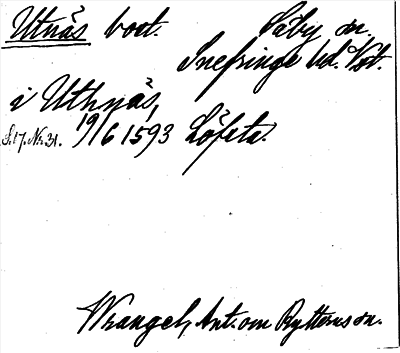 Utnäs bost. Säby sn.
Snefringe hd. Vst.
i Uthnäs,
S. 17. No. 31. 19/6 1593 Löfsta.
Wrangel, Ant. om Rytterns sn.